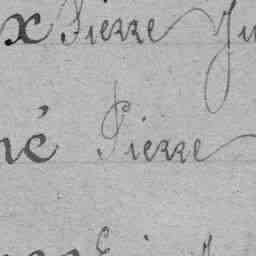 x Pierre Ju
né Pierre